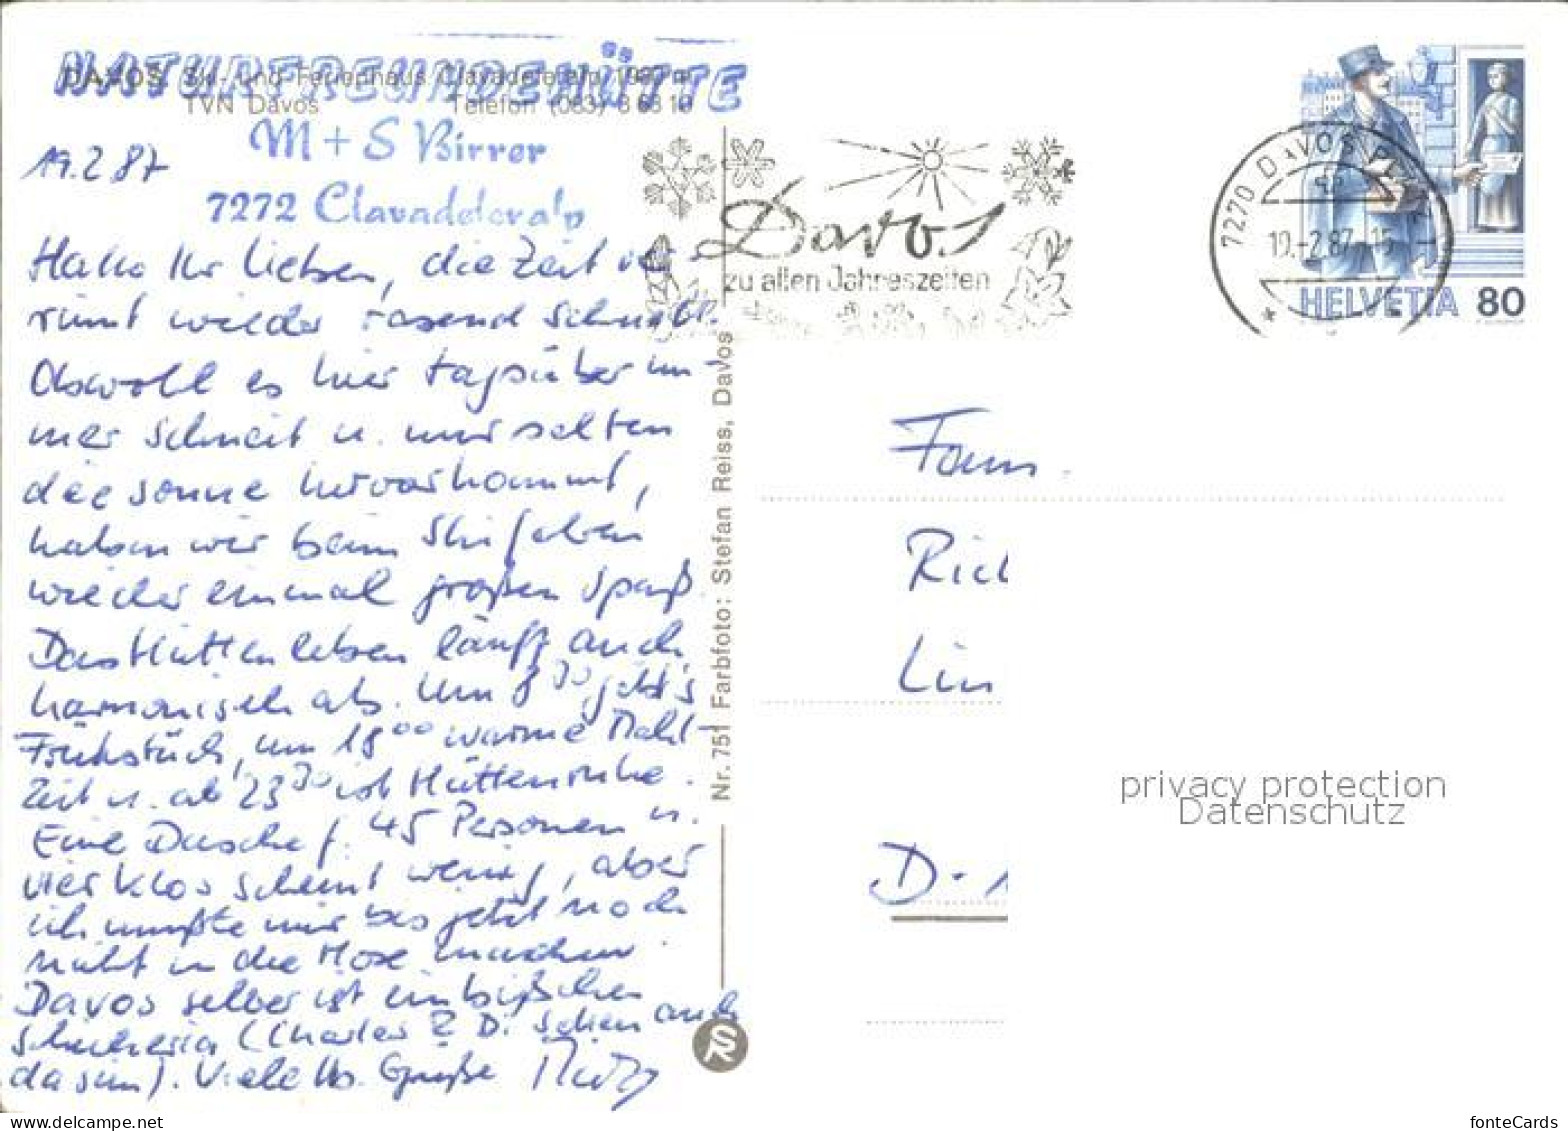 NATURFREUNDEHÜTTE
DAVOS Ski- und Ferienhaus Clavadeleralp
TVN Davos Telefon (083) 3 63 10
M + S Birrer
7272 Clavadeleralp
19.2.87
Hallo Ihr Lieben, die Zeit ver-
rinnt wieder rasend schnell.
Obwohl es hier tagsüber im-
mer schneit u. nur selten
die Sonne hervorkommt,
haben wir beim Skifahren
wieder einmal großen Spaß.
Das Hüttenleben läuft auch
harmonisch ab. Um 8 30 gibt's
Frühstück, um 18 00 warme Mahl-
zeit u. ab 22 30 ist Hüttenruhe.
Eine Dusche f. 45 Personen u.
vier Klos scheint wenig, aber
ich mußte mir bis jetzt noch
nicht in die Hose machen.
Davos selber ist ein bißchen
schickeria (Charles & Di sollen auch
da sein). Viele lb. Grüße
Nr. 751 Farbfoto: Stefan Reiss, Davos
Davos
zu allen Jahreszeiten
7270 DAVOS PLATZ
19.-2.87-15
HELVETIA 80
Fam.
Rich
Lin
D-
privacy protection
Datenschutz
fonteCards